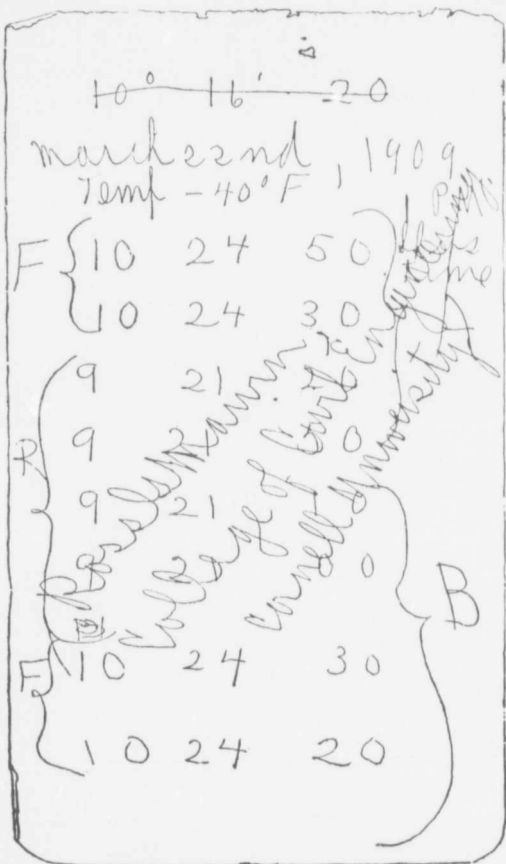 10° 16' 20
march 22nd, 1909
Temp -40°F
F 10 24 50
10 24 30
9 21
R 9 21 0
9 21
0
B
F 10 24 30
10 24 20
Ross G Marvin
College of Civil Engineering
Cornell University